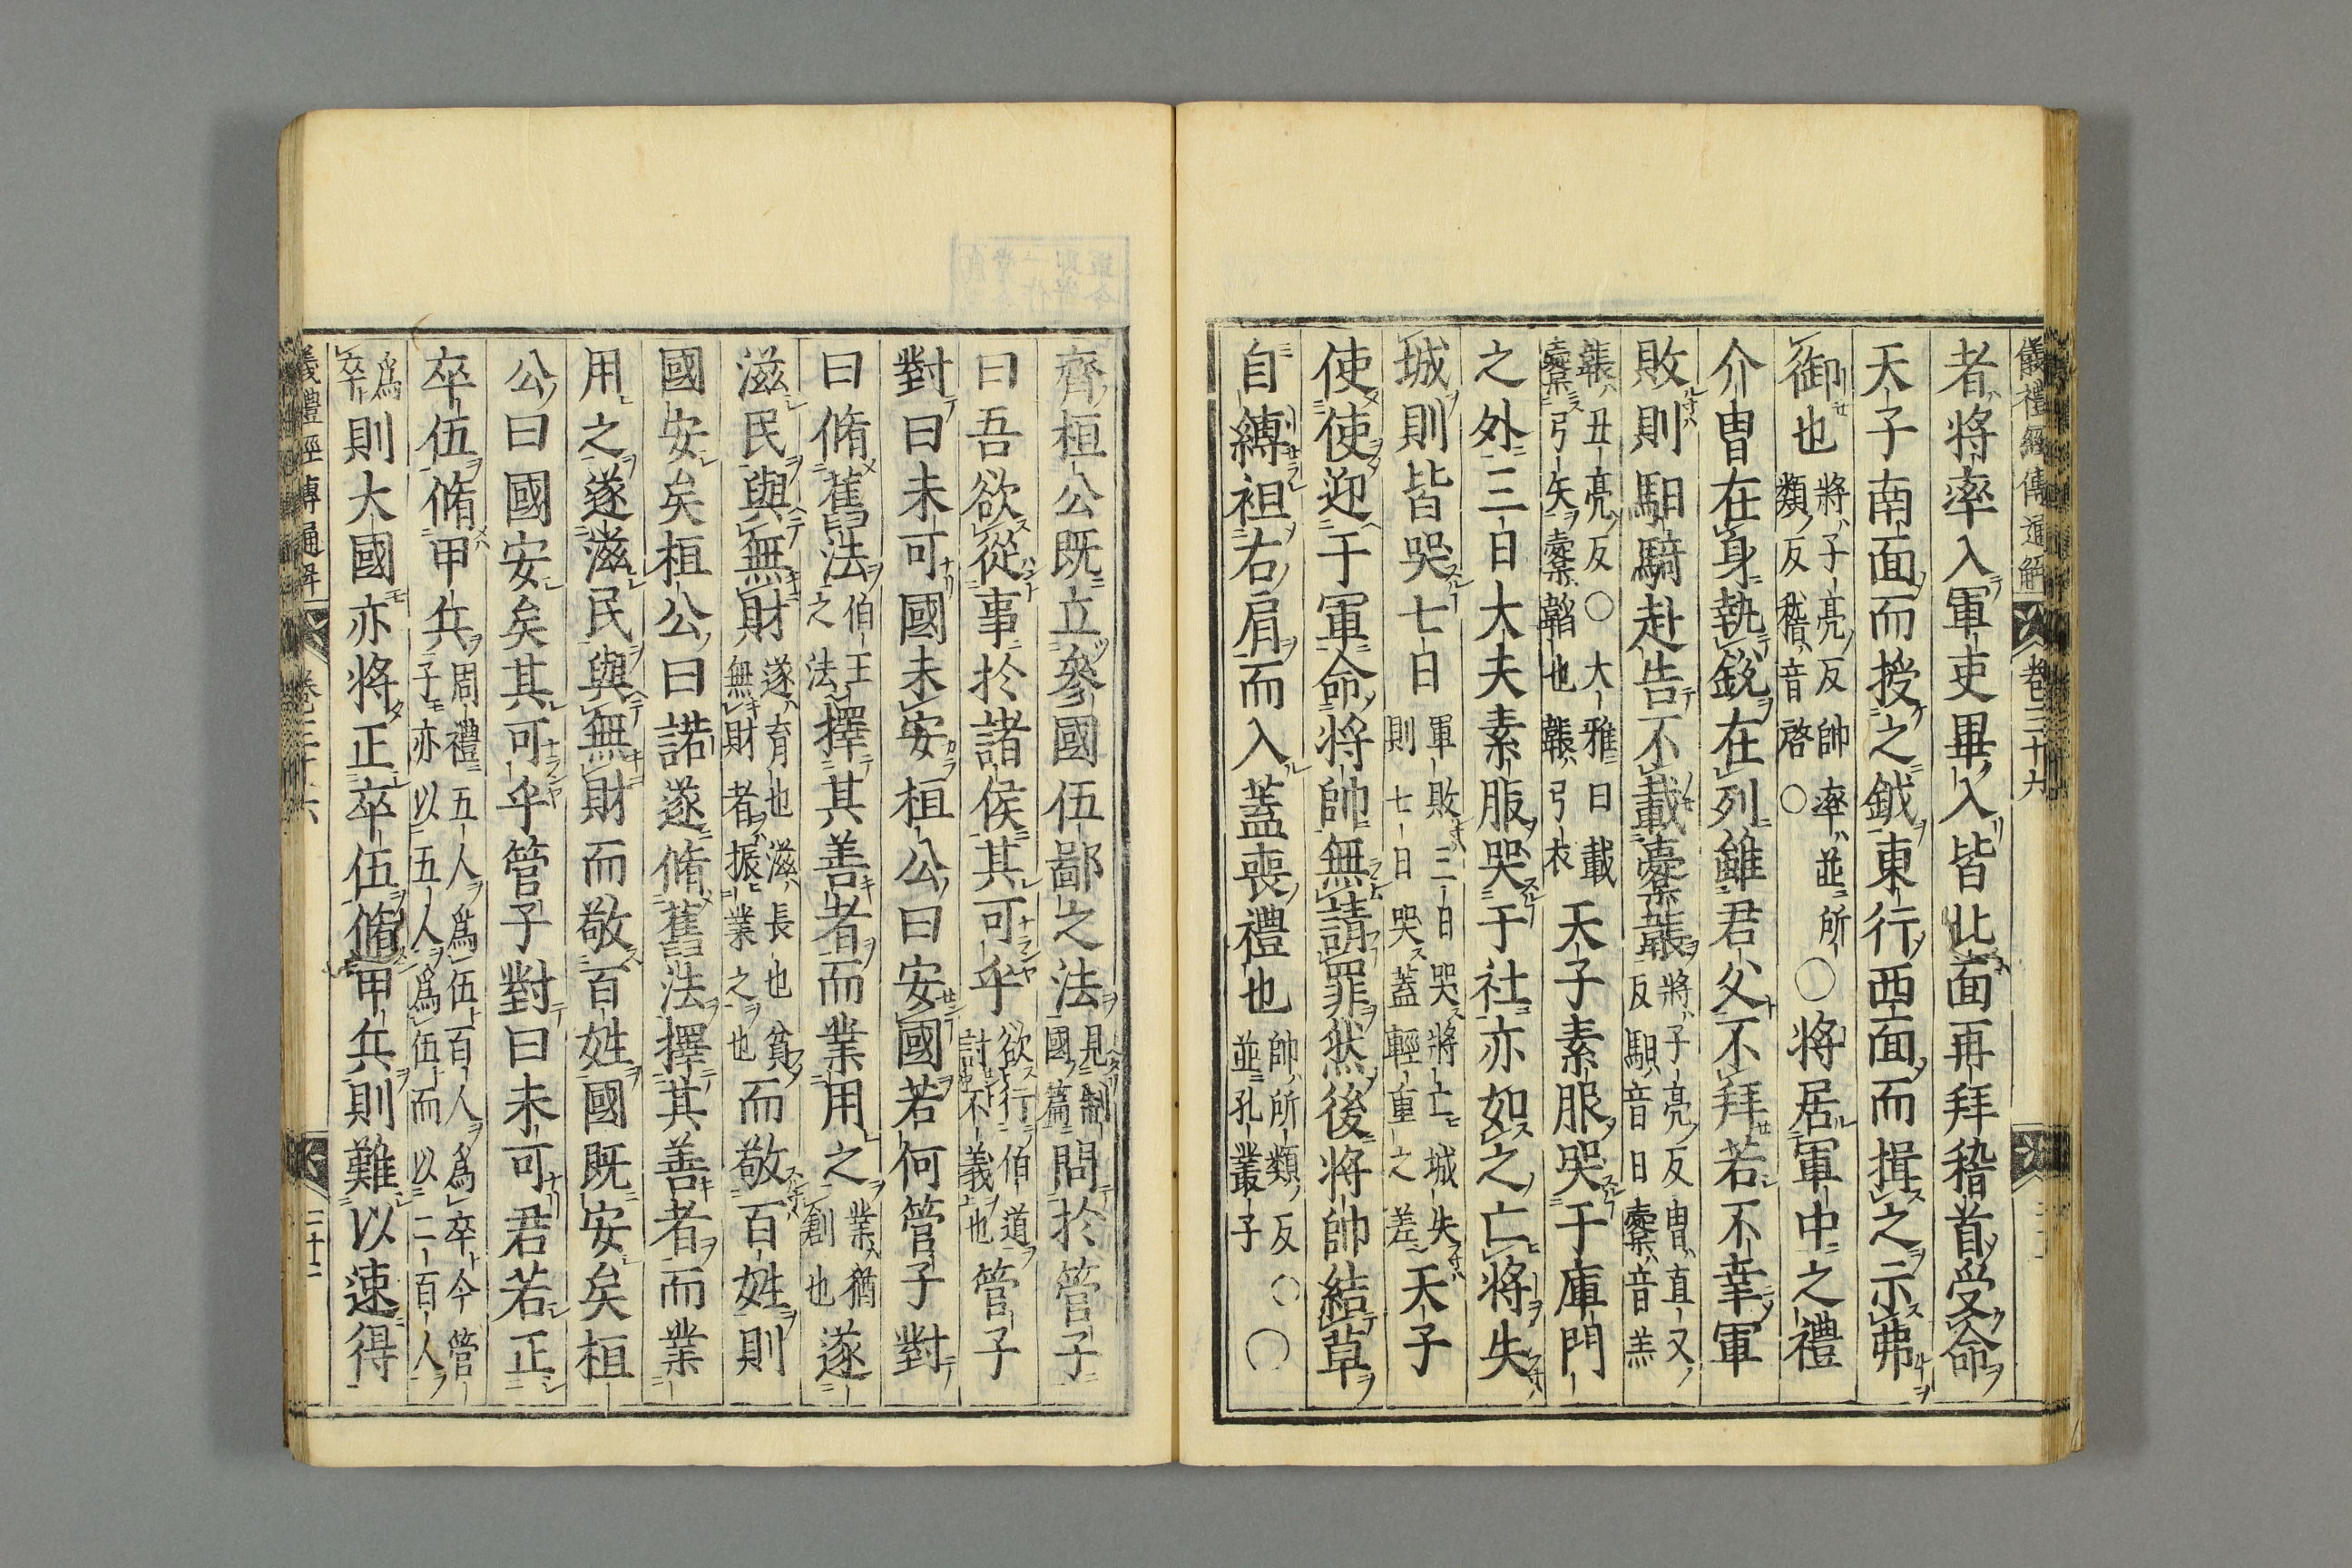 儀禮經傳通解 卷三十六
者將率入軍吏畢入皆北面再拜稽首受命
天子南面而授之鉞東行西面而揖之示弗
御也 將子亮反帥率並所類反稽音啓○ ○將居軍中之禮
介冑在身執銳在列雖君父不拜若不幸軍
敗則馹騎赴告不載櫜韔 將子亮反冑直又反馹音日櫜音羔
韔丑亮反○大雅曰載櫜弓矢櫜韜也韔弓衣 天子素服哭于庫門
之外三日大夫素服哭于社亦如之亡將失
城則皆哭七日 軍敗三日哭將亡城失則七日哭蓋輕重之差 天子
使使迎于軍命將帥無請罪然後將帥結草
自縛袒右肩而入蓋喪禮也 帥所類反並孔叢子○ ○
齊桓公既立參國伍鄙之法 見制國篇 問於管子
曰吾欲從事於諸侯其可乎 欲行伯道討不義也 管子
對曰未可國未安桓公曰安國若何管子對
曰脩舊法 伯王之法 擇其善者而業用之 業猶創也 遂
滋民與無財 遂育也滋長也貧無財者振業之也 而敬百姓則
國安矣桓公曰諾遂脩舊法擇其善者而業
用之遂滋民與無財而敬百姓國既安矣桓
公曰國安矣其可乎管子對曰未可君若正
卒伍脩甲兵 周禮五人爲伍百人爲卒今管子亦以五人爲伍而以二百人
爲卒 則大國亦將正卒伍脩甲兵則難以速得
儀禮經傳通解 卷三十六 二十二